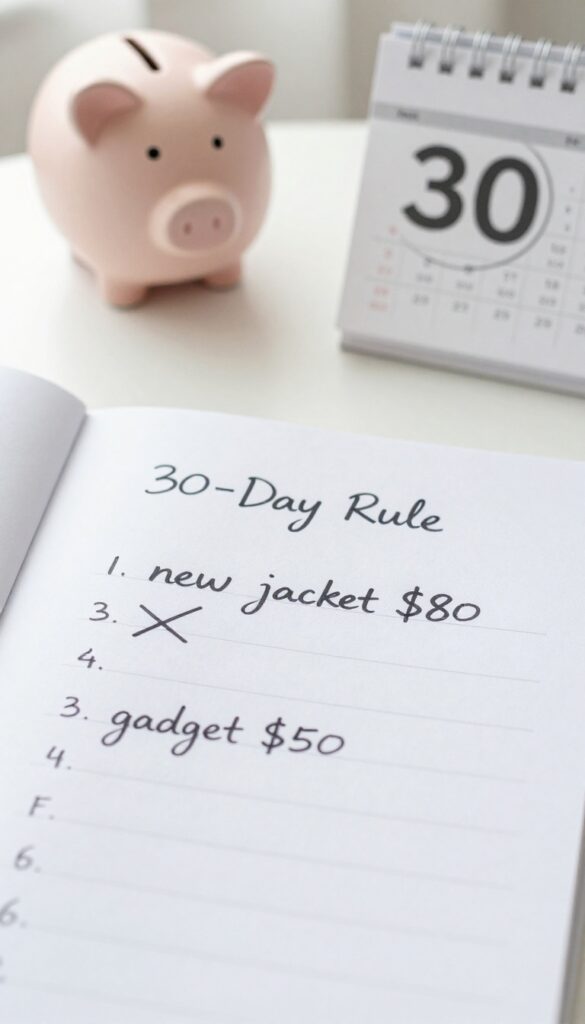 30
30-Day Rule
1. new jacket $80
3. X
4.
3. gadget $50
4.
F.
6.
6.